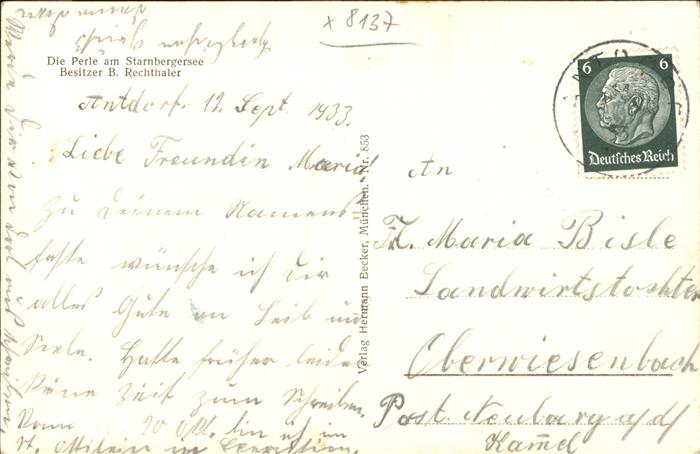 x 8137
Die Perle am Starnbergersee
Besitzer B. Rechthaler
Antdorf. 12. Sept. 1933.
Liebe Freundin Maria!
Zu Deinem Namens
feste wünsche ich Dir
alles Gute an Leib und
Seele. Hatte früher leider
keine Zeit zum Schreiben.
20 Okt. bin ich im
St. Ottilien in Exerzitien.
Verlag Hermann Becker, München. Nr. 853
6 6
Deutsches Reich
An
Maria Bisle
Landwirtstochter
Oberwiesenbach
Post. Neuburg a/d/
Kammel